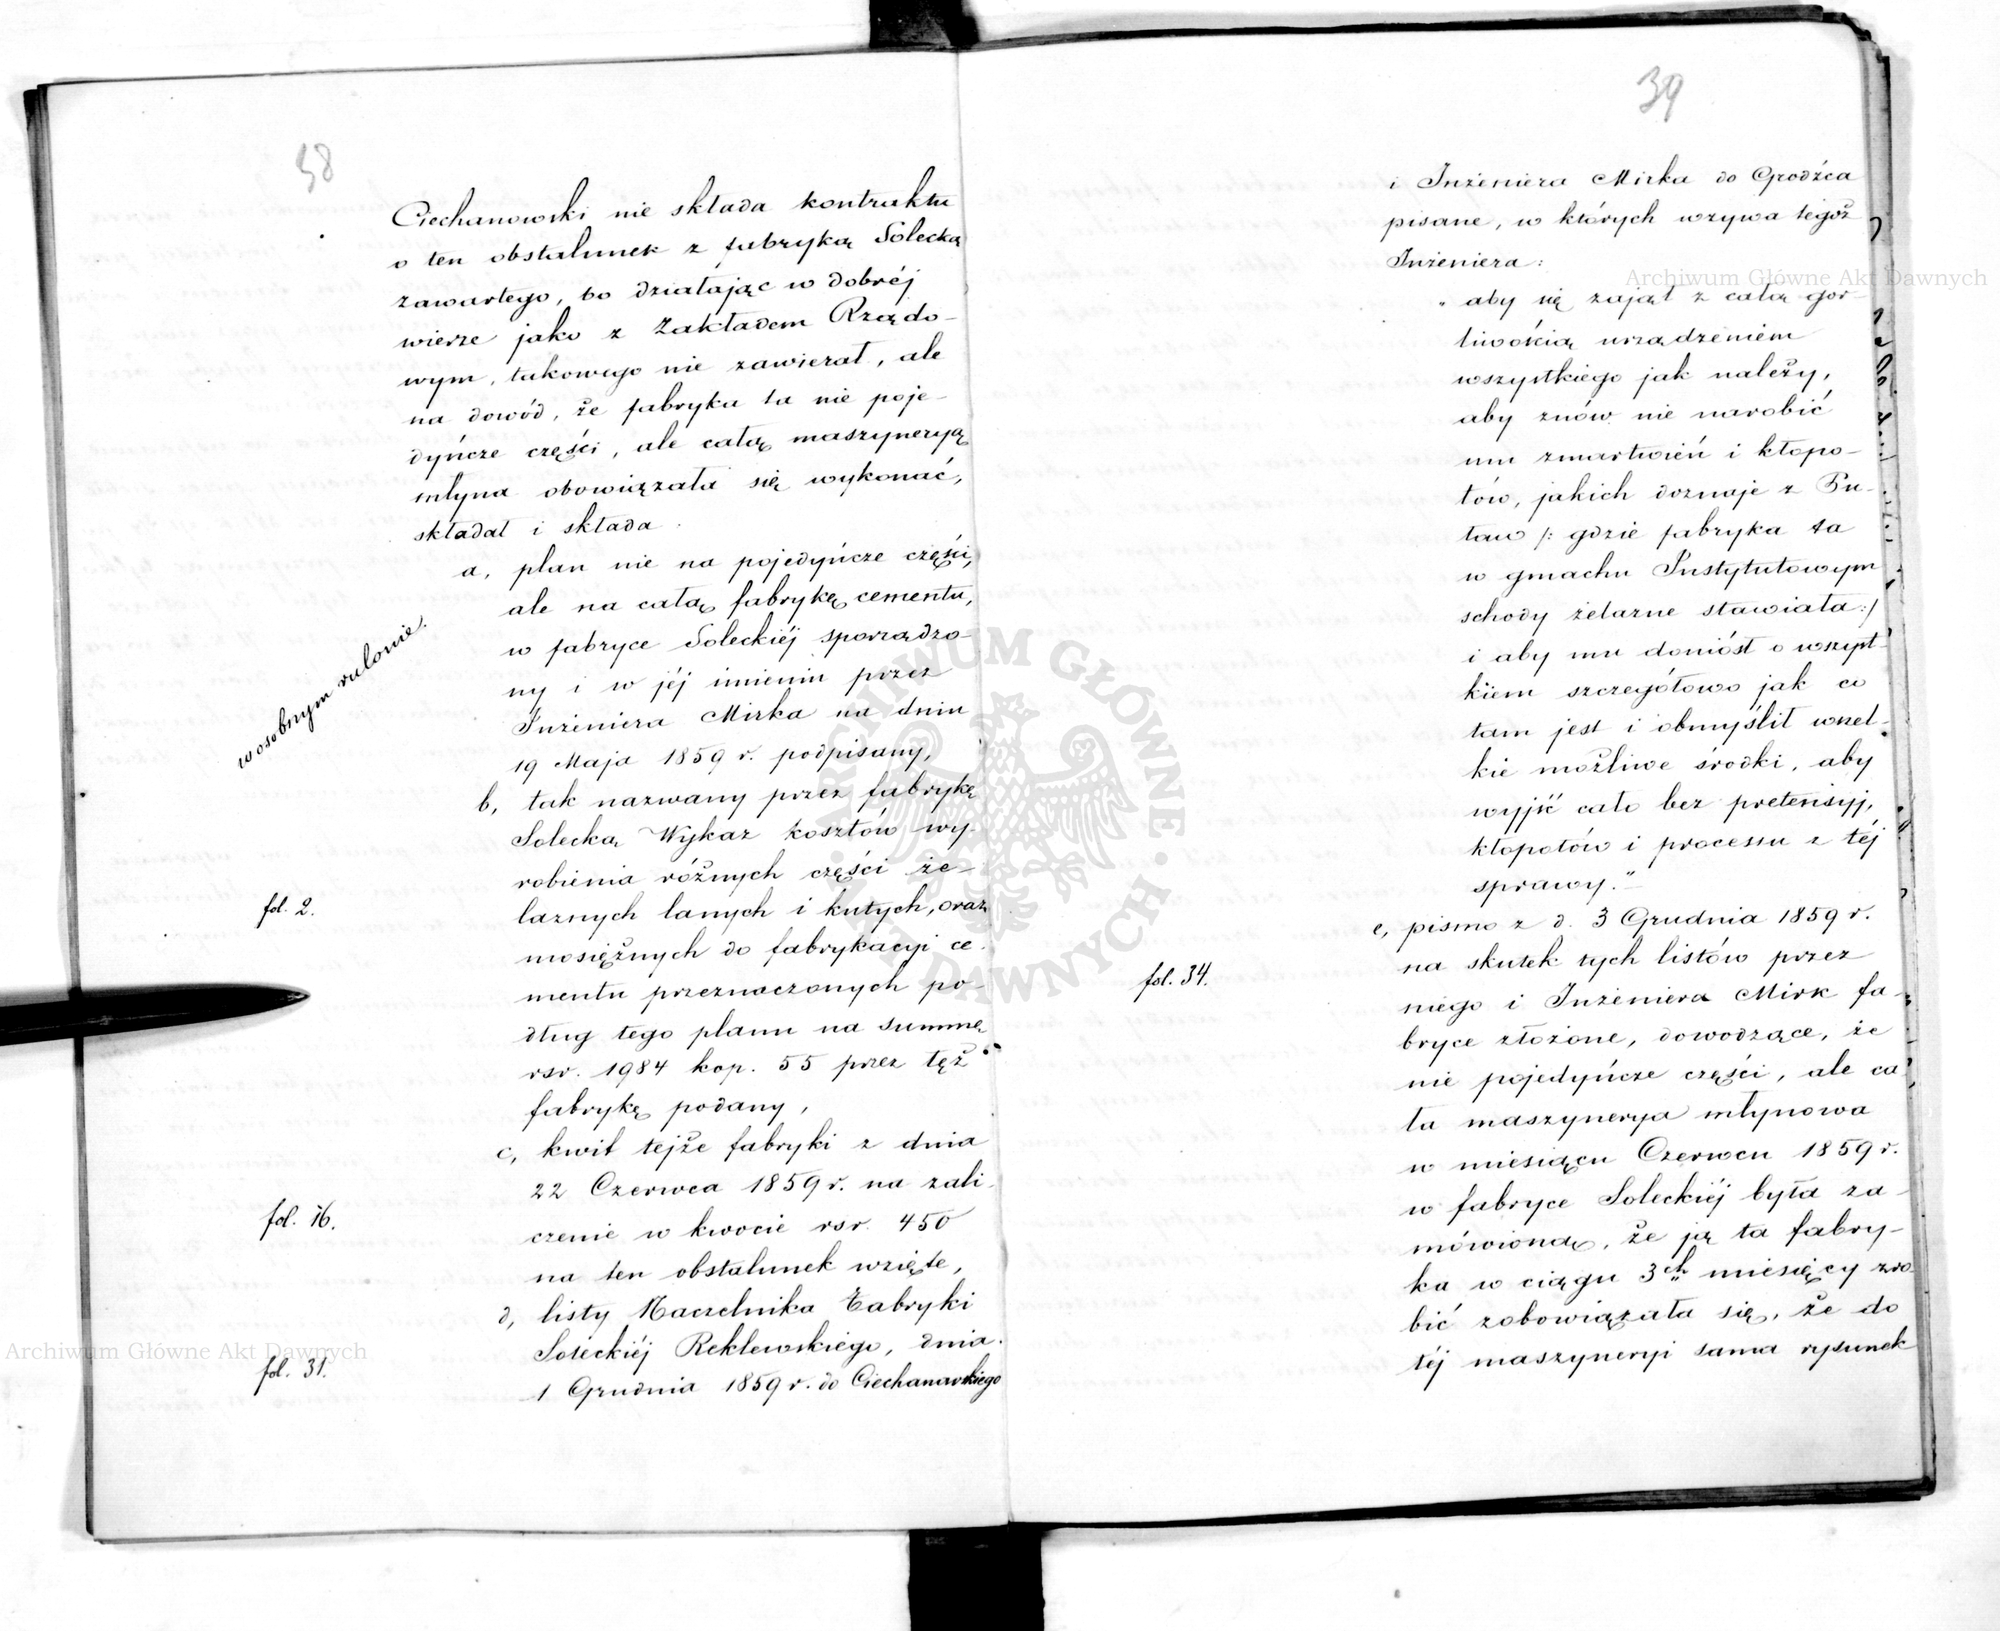 38
Ciechanowski nie składa kontraktu
o ten obstalunek z fabryką Solecką
zawartego, bo działając w dobréj
wierze jako z Zakładem Rządo-
wym, takowego nie zawierał, ale
na dowód, że fabryka ta nie poje-
dyńcze części, ale całą maszyneryą
młyna obowiązała się wykonać,
składał i składa
a, plan nie na pojedyńcze części,
ale na całą fabrykę cementu,
w fabryce Soleckiéj sporządzo-
ny i w jéj imieniu przez
Inżeniera Mirka na dniu
19 Maja 1859 r. podpisany,
w osobnym rulonie.
b, tak nazwany przez fabrykę
Solecką Wykaz kosztów wy-
robienia różnych części że-
laznych lanych i kutych, oraz
fol. 2.
mosiężnych do fabrykacyi ce-
mentu przeznaczonych po-
dług tego planu na summę
rsr. 1984 kop. 55 przez tęż
fabrykę podany,
c, kwit tejże fabryki z dnia
22 Czerwca 1859 r. na zali-
fol. 16.
czenie w kwocie rsr. 450
na ten obstalunek wzięte,
d, listy Naczelnika Fabryki
Soleckiéj Reklewskiego, dnia
fol. 31.
1 Grudnia 1859 r. do Ciechanowskiego
39
i Inżeniera Mirka do Grodźca
pisane, w których wzywa tegoż
Inżeniera:
„aby się zajął z całą gor-
liwością urządzeniem
wszystkiego jak należy,
aby znów nie narobić
mu zmartwień i kłopo-
tów, jakich doznaje z Pu-
ław /: gdzie fabryka ta
w gmachu Instytutowym
schody żelazne stawiała :/
i aby mu doniósł o wszyst-
kiem szczegółowo jak co
tam jest i obmyślił wszel-
kie możliwe środki, aby
wyjść cało bez pretensyj,
kłopotów i processu z téj
sprawy."
e, pismo z d. 3 Grudnia 1859 r.
na skutek tych listów przez
fol. 34.
niego i Inżeniera Mirk fa-
bryce złożone, dowodzące, że
nie pojedyńcze części, ale ca-
ła maszynerya młynowa
w miesiącu Czerwcu 1859 r.
w fabryce Soleckiéj była za-
mówioną, że ją ta fabry-
ka w ciągu 3ch miesięcy zro-
bić zobowiązała się, że do
téj maszyneryi sama rysunek
Archiwum Główne Akt Dawnych
Archiwum Główne Akt Dawnych
ARCHIWUM GŁÓWNE AKT DAWNYCH